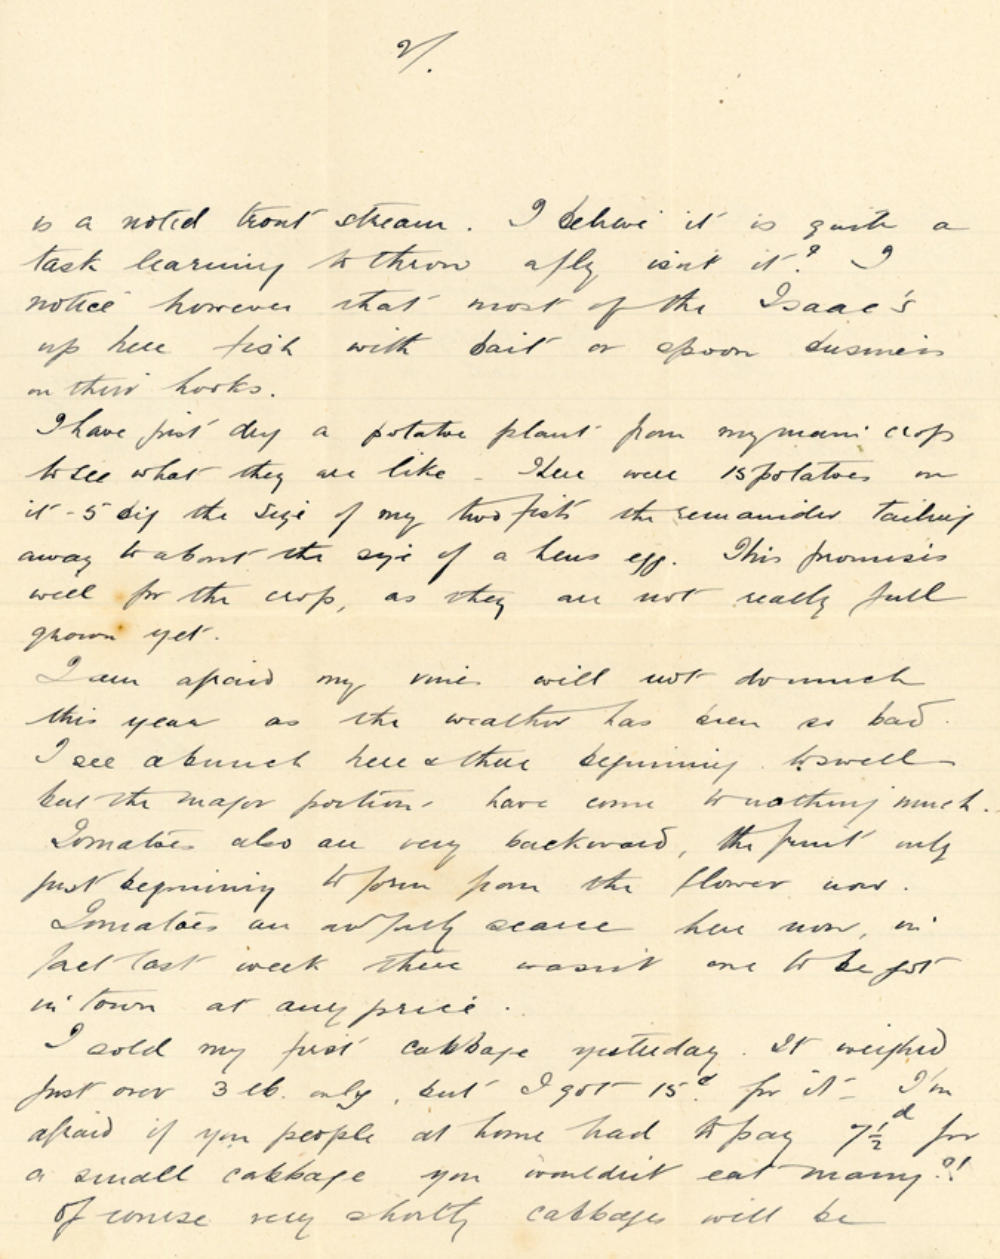 2/.
is a noted trout stream. I believe it is quite a
task learning to throw a fly isn't it? I
notice however that most of the Isaac's
up here fish with bait or spoon business
on their hooks.
I have just dug a potatoe plant from my main crop
to see what they are like - There were 15 potatoes on
it - 5 big the size of my two fists the remainder tailing
away to about the size of a hens egg. This promises
well for the crop, as they are not really full
grown yet.
I am afraid my vines will not do much
this year as the weather has been so bad.
I see a bunch here & there beginning to swell
but the major portion have come to nothing much.
Tomatoes also are very backward, the fruit only
just beginning to form from the flower now.
Tomatoes are awfully scarce here now, in
fact last week there wasn't one to be got
in town at any price.
I sold my first cabbage yesterday. It weighed
just over 3 lb. only, but I got 15d for it - I'm
afraid if you people at home had to pay 7½d for
a small cabbage you wouldn't eat many?!
Of course very shortly cabbages will be